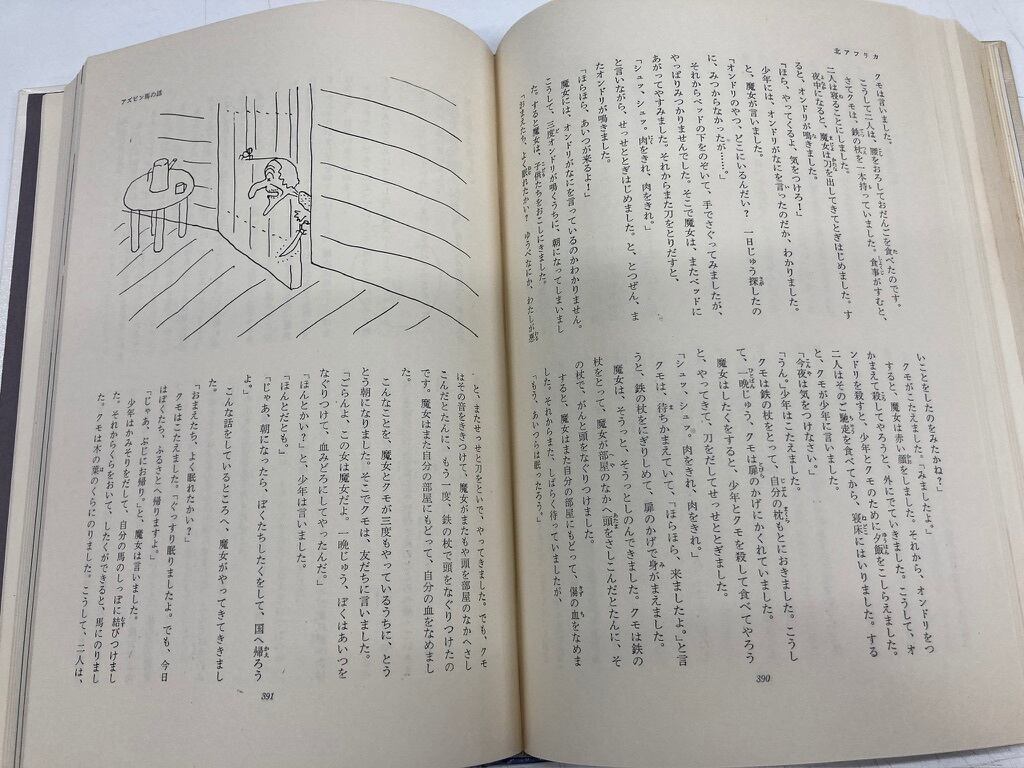 北アフリカ
クモは言いました。
こうして二人は、腰をおろしておだんごを食べたのです。
さてクモは、鉄の杖を一本持っていました。食事がすむと、
二人は寝ることにしました。
夜中になると、魔女は刀を出してきてとぎはじめました。す
ると、オンドリが鳴きました。
「ほら、やってくるよ、気をつけろ!」
少年には、オンドリがなにを言ったのだか、わかりました。
と、魔女が言いました。
「オンドリのやつ、どこにいるんだい? 一日じゅう探したの
に、みつからなかったが……。」
それからベッドの下をのぞいて、手でさぐってみましたが、
やっぱりみつかりませんでした。そこで魔女は、またベッドに
あがってやすみました。それからまた刀をとりだすと、
「シュッ、シュッ。肉をきれ、肉をきれ。」
と言いながら、せっせととぎはじめました。と、とつぜん、ま
たオンドリが鳴きました。
「ほらほら、あいつが来るよ!」
魔女には、オンドリがなにを言っているのかわかりません。
こうして、三度オンドリが鳴くうちに、朝になってしまいまし
た。すると魔女は、子供たちをおこしにきました。
「おまえたちや、よく眠れたかい? ゆうべなにか、わたしが悪
いことをしたのをみたかね?」
クモがこたえました。「みましたよ。」
すると、魔女は赤い顔をしました。それから、オンドリをつ
かまえて殺してやろうと、外にでていきました。こうして、オ
ンドリを殺すと、少年とクモのために夕飯をこしらえました。
二人はそのご馳走を食べてから、寝床にはいりました。する
と、クモが少年に言いました。
「今夜は気をつけなさい。」
「うん。」少年はこたえました。
クモは鉄の杖をとって、自分の枕もとにおきました。こうし
て、一晩じゅう、クモは扉のかげにかくれていました。
魔女はしたくをすると、少年とクモを殺して食べてやろう
と、やってきて、刀をだしてせっせととぎました。
「シュッ、シュッ。肉をきれ、肉をきれ。」
クモは、待ちかまえていて、「ほらほら、来ましたよ」と言
うと、鉄の杖をにぎりしめて、扉のかげで身がまえました。
魔女は、そうっと、そうっとしのんできました。クモは鉄の
杖をとって、魔女が部屋のなかへ頭をさしこんだとたんに、そ
の杖で、がんと頭をなぐりつけました。
すると、魔女はまた自分の部屋にもどって、傷の血をなめま
した。それからまた、しばらく待っていましたが、
「もう、あいつらは眠ったろう。」
390
アズビン馬の話
と、またせっせと刀をといで、やってきました。でも、クモ
はその音をききつけて、魔女がまたもや頭を部屋のなかへさし
こんだとたんに、もう一度、鉄の杖で頭をなぐりつけたの
です。魔女はまた自分の部屋にもどって、自分の血をなめまし
た。
こんなことを、魔女とクモが三度もやっているうちに、とう
とう朝になりました。そこでクモは、友だちに言いました。
「ごらんよ、この女は魔女だよ。一晩じゅう、ぼくはあいつを
なぐりつけて、血みどろにしてやったんだ。」
「ほんとかい?」と、少年は言いました。
「ほんとだとも。」
「じゃあ、朝になったら、ぼくたちしたくをして、国へ帰ろう
よ。」
こんな話をしているところへ、魔女がやってきてききまし
た。
「おまえたち、よく眠れたかい?」
クモはこたえました。「ぐっすり眠りましたよ。でも、今日
はぼくたち、ふるさとへ帰りますよ。」
「じゃあ、ぶじにお帰り。」と、魔女は言いました。
少年はかみそりをだして、自分の馬のしっぽに結びつけまし
た。それからくらをおいて、したくができると、馬にのりまし
た。クモは木の葉のくらにのりました。こうして、二人は、
391